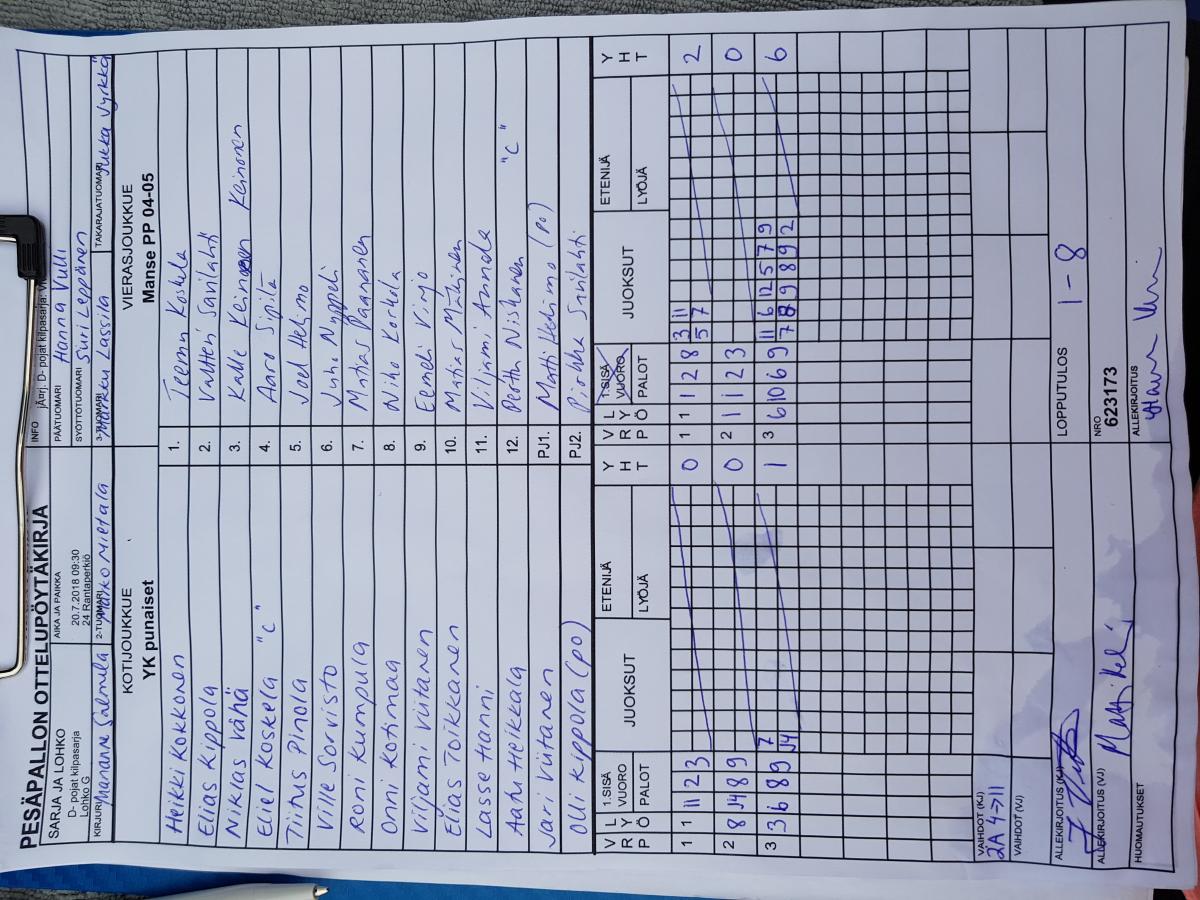 PESÄPALLON OTTELUPÖYTÄKIRJA
SARJA JA LOHKO
D- pojat kilpasarja
Lohko G
AIKA JA PAIKKA
20.7.2018 09:30
24 Rantaperkiö
INFO
PÄÄTUOMARI Hanna Vulli
SYÖTTÖTUOMARI Suri Leppänen
KIRJURI Marianne Salmila
2-TUOMARI Marko Mieltala
3-TUOMARI Markku Lassila
TAKARAJATUOMARI Jukka Jyrkkä
KOTIJOUKKUE
YK punaiset
VIERASJOUKKUE
Manse PP 04-05
Heikki Kokkonen 1. Teemu Koskela
Elias Kippola 2. Valtteri Savilahti
Niklas Vähä 3. Kalle Keinonen Keinonen
Eliel Koskela "C" 4. Aaro Sipilä
Tiitus Pinola 5. Joel Helimo
Ville Sorvisto 6. Juho Nyppeli
Roni Kumpula 7. Matias Paananen
Onni Kotimaa 8. Niko Korkola
Viljami Viitanen 9. Eemeli Virjo
Elias Toikkanen 10. Matias
Lasse Hanni 11. Viljami Annala
Aatu Heikkala 12. Peetu Niskanen "C"
Jari Viitanen PJ1. Matti Helimo (po)
Olli Kippola (po) PJ2. Pirkka Savilahti
V R P L Y Ö 1.SISÄ VUORO PALOT JUOKSUT ETENIJÄ LYÖJÄ Y H T
V R P L Y Ö 1.SISÄ VUORO PALOT JUOKSUT ETENIJÄ LYÖJÄ Y H T
1 1 11 2 3 0
1 1 1 2 8 3 11 2
5 7
2 8 J4 8 9 0
2 1 1 2 3 0
3 3 6 8 9 7 1
J4
3 6 10 6 9 11 6 12 5 7 9 6
7 8 9 8 9 2
VAIHDOT (KJ)
2A 4->11
VAIHDOT (VJ)
LOPPUTULOS 1 - 8
ALLEKIRJOITUS (KJ)
ALLEKIRJOITUS (VJ)
NRO
623173
HUOMAUTUKSET
ALLEKIRJOITUS